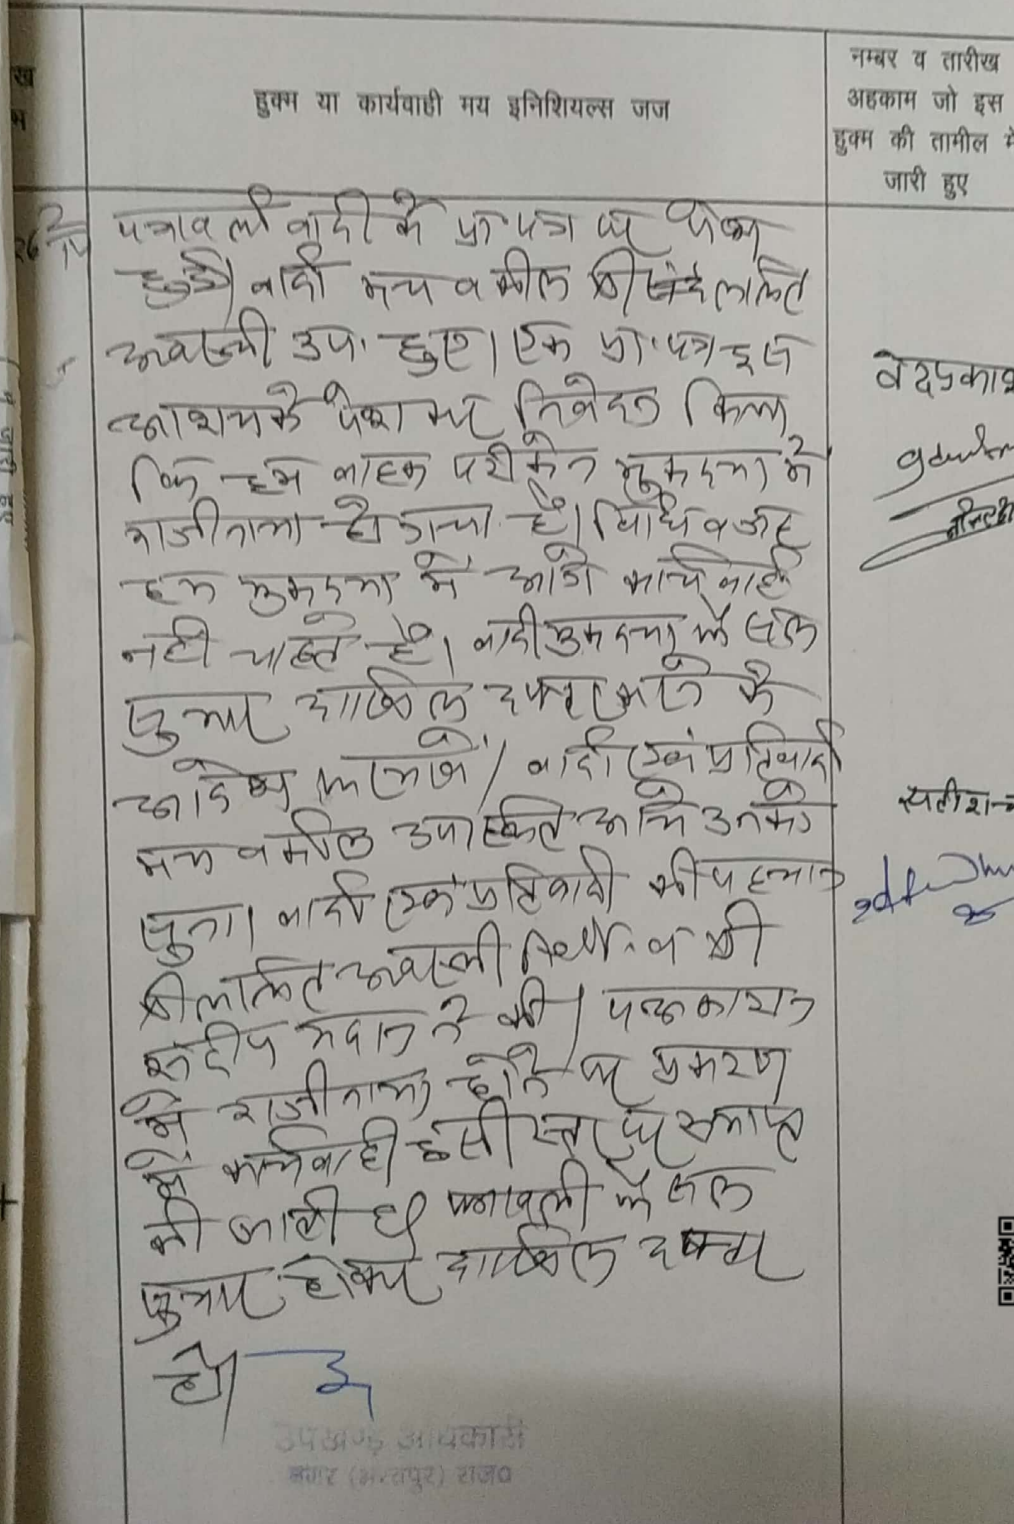 हुक्म या कार्यवाही मय इनिशियल्स जज
नम्बर व तारीख
अहकाम जो इस
हुक्म की तामील में
जारी हुए
पत्रावली वादी के प्रा पत्र पर पेश
हुई। वादी मय वकील श्री ललित
अवस्थी उप. हुए। एक प्रा.पत्र इस
आशय के पेश कर निवेदन किया
कि हम मुकदमा में
राजीनामा हो गया है।
हम मुकदमा में आगे कार्यवाही
नही चाहते है। वादी मुकदमा फैसल
शुमार दाखिल दफ्तर करने के
आदेश फरमावें। वादी एवं प्रतिवादी
मय वकील उपस्थित आये उनको
सुना। वादी एवं प्रतिवादी की पहचान
श्री ललित अवस्थी व श्री
संदीप मदान ने की। पक्षकारान
में राजीनामा होने पर प्रकरण
में कार्यवाही इसी स्तर पर समाप्त
की जाती है पत्रावली फैसल
शुमार होकर दाखिल दफ्तर
हो।
वेदप्रकाश
उपखण्ड अधिकारी
नगर (भरतपुर) राज०